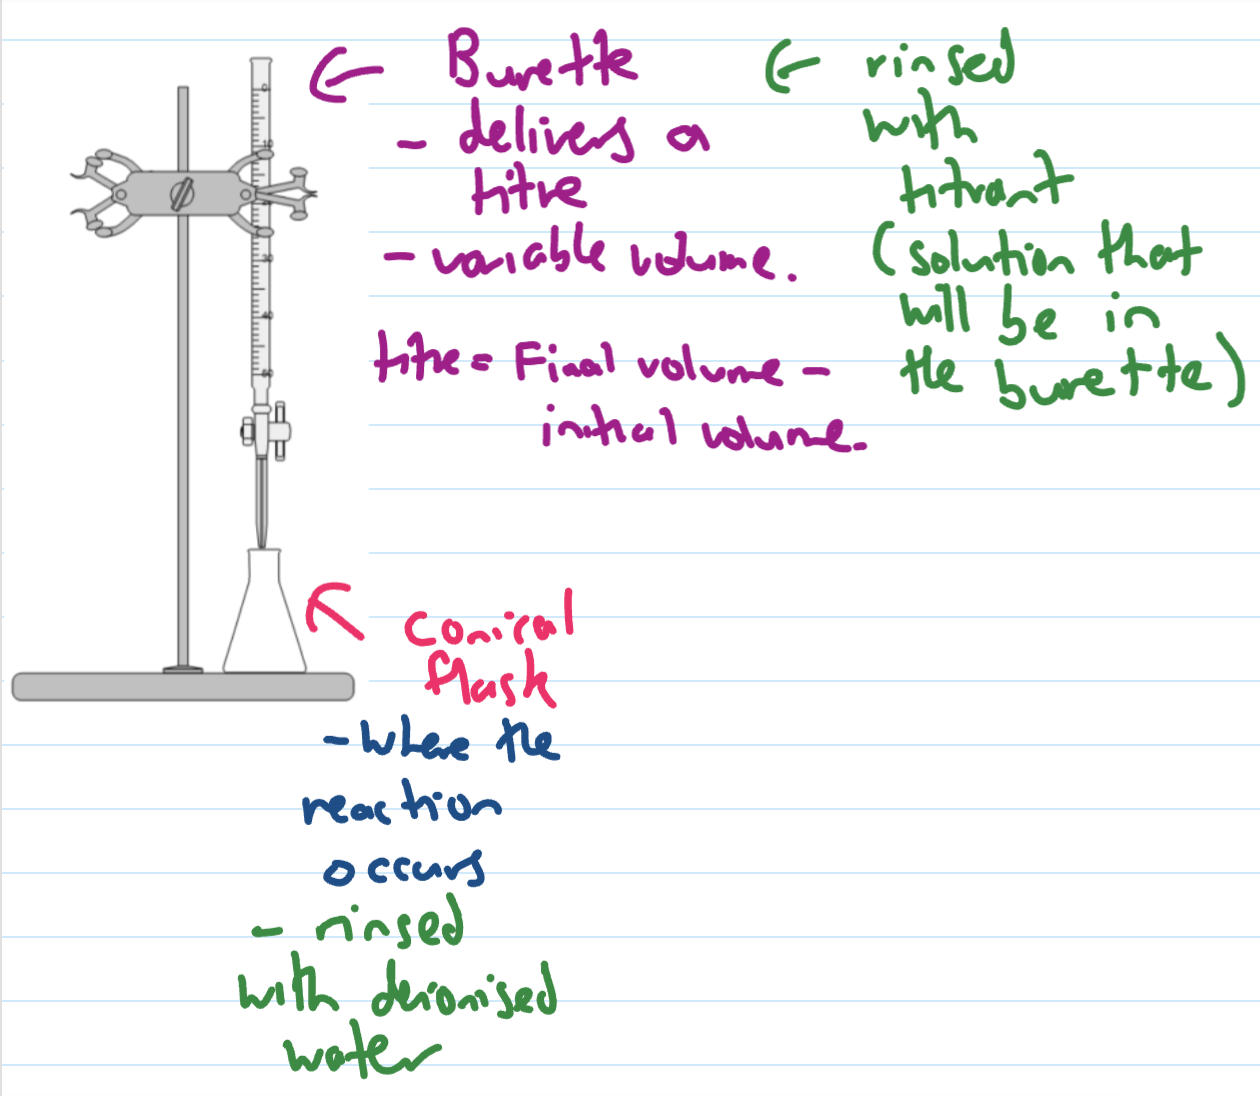 Burette
- delivers a
titre
- variable volume.
titre = Final volume -
initial volume.
rinsed
with
titrant
(solution that
will be in
the burette)
0
10
30
40
50
conical
flask
- where the
reaction
occurs
- rinsed
with deionised
water